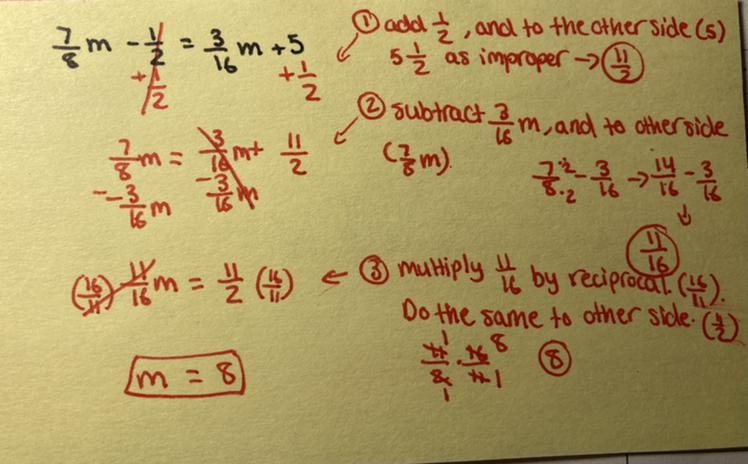 7/8 m - 1/2 = 3/16 m + 5
+ 1/2 + 1/2
① add 1/2, and to the other side (5)
5 1/2 as improper → 11/2
7/8 m = 3/16 m + 11/2
- 3/16 m - 3/16 m
② subtract 3/16 m, and to other side
(7/8 m).
7·2/8·2 - 3/16 → 14/16 - 3/16
↓
11/16
(16/11) 11/16 m = 11/2 (16/11)
← ③ multiply 11/16 by reciprocal. (16/11).
Do the same to other side.
m = 8
8